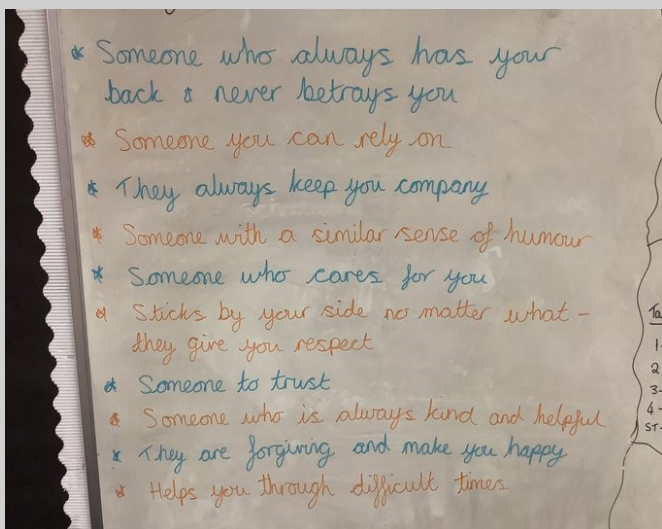 * Someone who always has your
back & never betrays you
* Someone you can rely on
* They always keep you company
* Someone with a similar sense of humour
* Someone who cares for you
* Sticks by your side no matter what -
they give you respect
* Someone to trust
* Someone who is always kind and helpful
* They are forgiving and make you happy
* Helps you through difficult times
Ta
1-
2
3-
4-
ST-